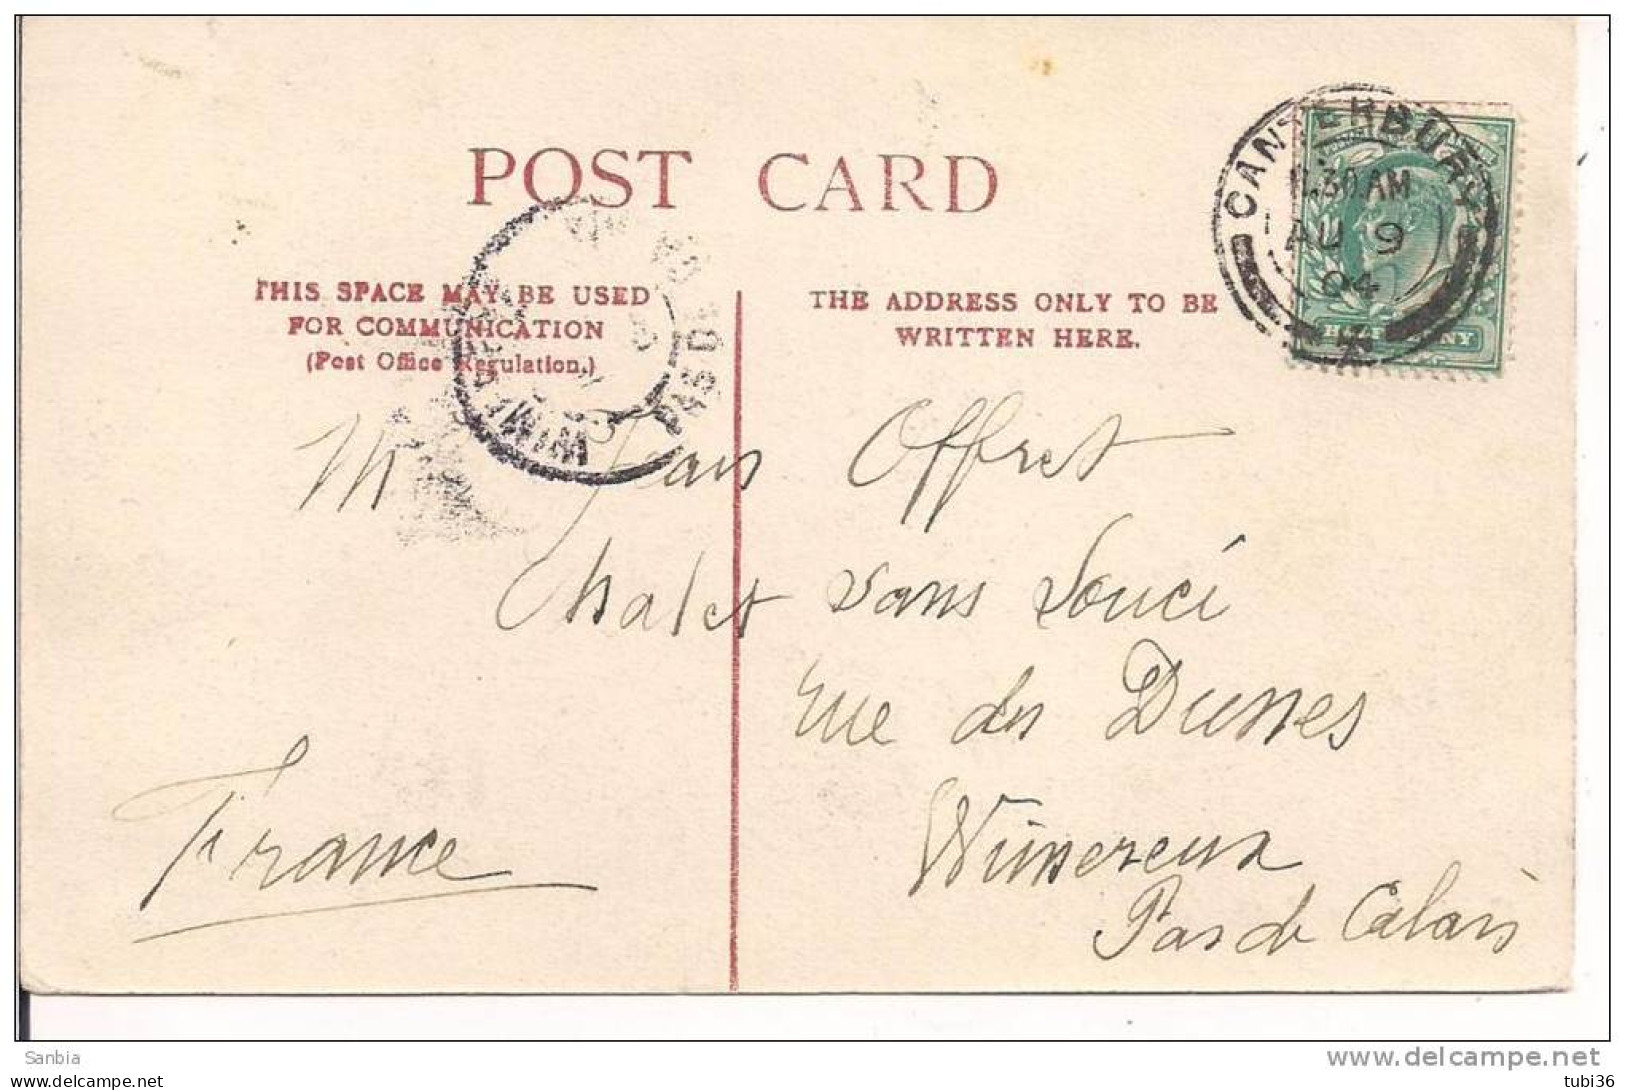 POST CARD
CANTERBURY
.30 AM
AU 9
04
THIS SPACE MAY BE USED
FOR COMMUNICATION
(Post Office Regulation.)
THE ADDRESS ONLY TO BE
WRITTEN HERE.
PAS D
M Jean Offret
Chalet Sans Souci
rue des Dunes
Wimereux
Pas de Calais
France
Sanbia
www.delcampe.net
tubi36